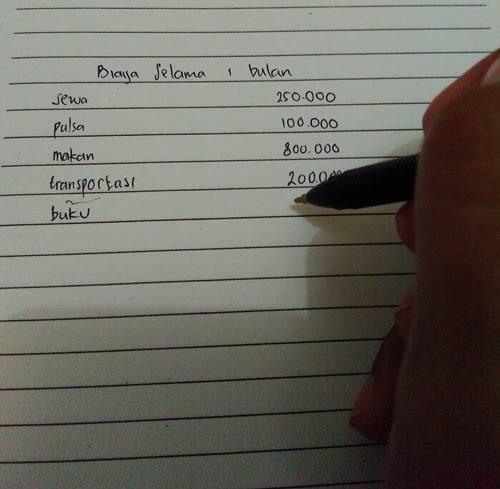 Biaya Selama 1 bulan
sewa 250.000
pulsa 100.000
makan 800.000
transportasi
buku